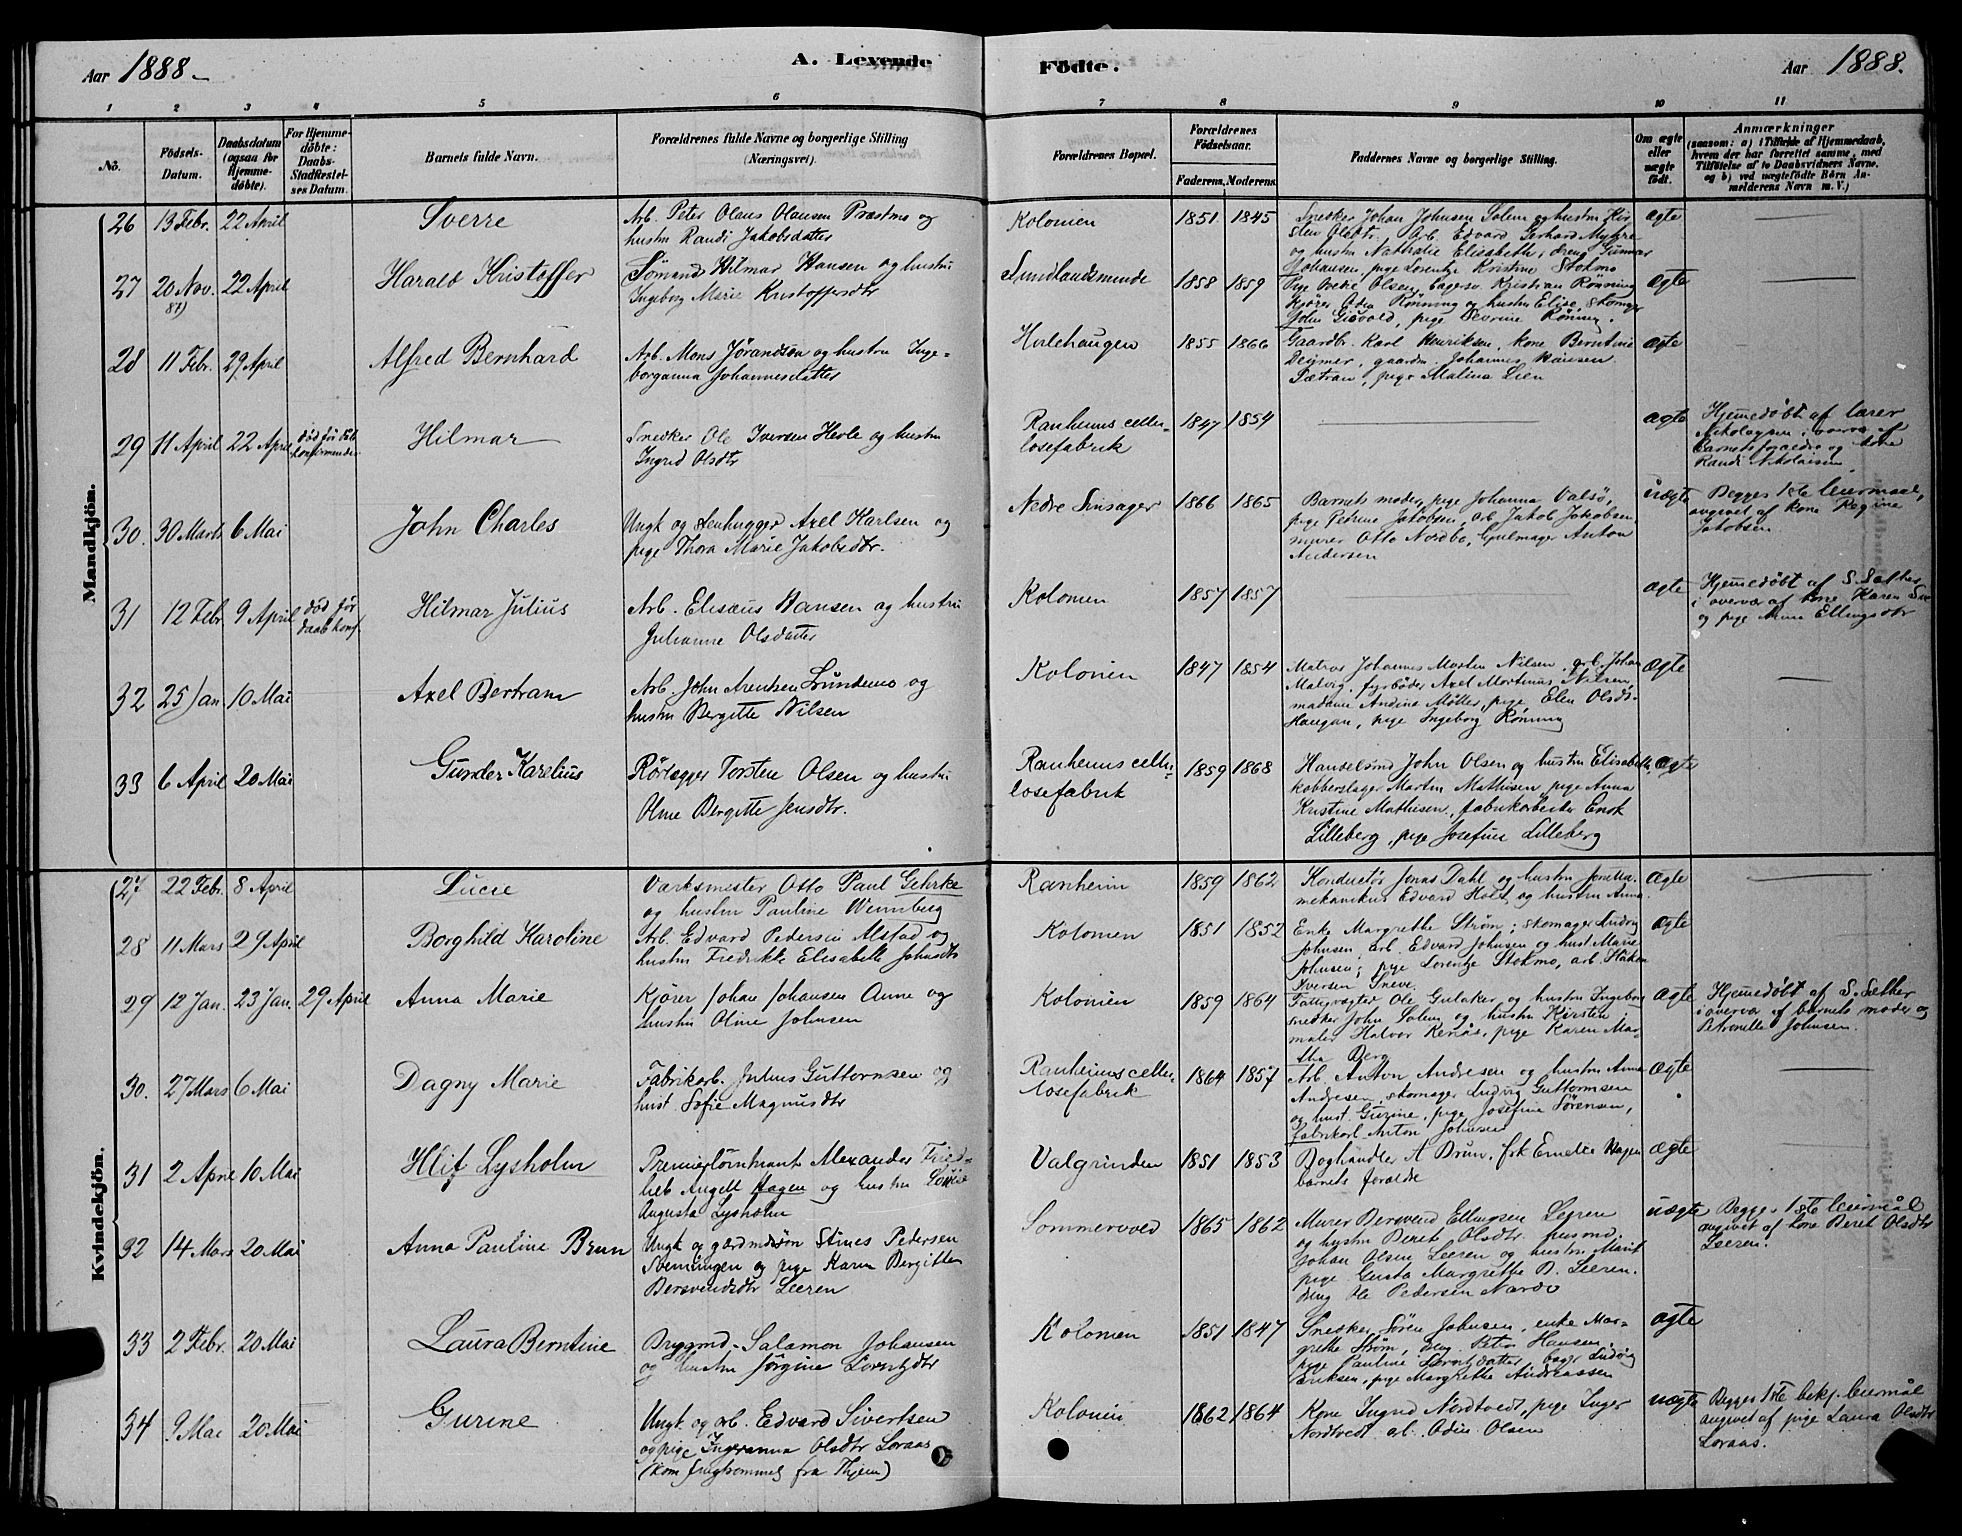 Aar 1888.
A. Levende
Födte.
Aar 1888.
1 2 3 4 5 6 7 8 9 10 11
No.
Födsels-
Datum.
Daabsdatum
(ogsaa for
Hjemme-
döbte).
For Hjemme-
döbte:
Daabs-
Stadfæstel-
ses Datum.
Barnets fulde Navn.
Forældrenes fulde Navne og borgerlige Stilling
(Næringsvei).
Forældrenes Bopæl.
Forældrenes
Födselsaar.
Faderens. Moderens.
Faddernes Navne og borgerlige Stilling.
Om ægte
eller
uægte
födt.
Anmærkninger
(saasom: a) i Tilfælde af Hjemmedaab,
hvem der har forrettet samme, med
Tilföielse af to Daabsvidners Navne,
og b) ved uægtefödte Börn An-
melderens Navn m. V.)
Mandkjön.
26 13 Febr. 22 April
Sverre
Arb. Peter Olaus Olausen Præstmo og
hustru Randi Jakobsdatter
Kolonien 1851 1845
Snedker Johan Johnsen Solem og hustru Kir-
sten Olsdtr, Arb. Edvard Gerhard Myhre
og hustru Nathalie Elisabeth, dreng Gunnar
Johansen, pige Lorentze Kristine Stokmo
ægte
27 20 Nov. 22 April
87)
Harald Kristoffer
Sömand Hilmar Hansen og hustru
Ingeborg Marie Kristoffersdtr
Sundlandsminde 1858 1859
Olsen, Kristian Rønning
kjører Odin Rønning og hustru Elise, Skomager
John Gisvold, pige Severine Rønning.
ægte
28 11 Febr. 29 April
Alfred Bernhard
Arb. Mons Jørandson og hustru Inge-
borganna Johannesdatter
Hørlehaugen 1855 1866
Gaardbr. Karl Henriksen, kone Berntine
gaardm. Johannes Hansen
Pætran, pige Malina Lien
ægte
29 11 April 22 April
Hilmar
Snedker Ole Iversen Herle og hustru
Ingrid Olsdtr
Ranheims cellu-
losefabrik
1847 1854
ægte
Hjemedøbt af lærer
Nikolaysen i overvær af
barnets forældre og kone
Randi Nikolaisen.
30. 30 Marts 6 Mai
John Charles
Ungk og Stenhugger Axel Karlsen og
pige Thora Marie Jakobsdtr.
Nedre Sinsager 1866 1865
Barnets moder, pige Johanna Valsö,
pige Petrine Jakobsen, arb. Jakob Jakobsen
murer Otto Nordbo, Gjulmager Anton
Andersen
uægte
Begges 1ste leiermaal,
angivet af kone Regine
Jakobsen
31 12 Febr 9 April
død før
daab konf.
Hilmar Julius
Arb. Elisæus Hansen og hustru
Julianne Olsdatter
Kolonien 1857 1857
ægte
Hjemedøbt af S. Sæther
i overvær af kone Karen
og pige Ellingsdtr
32 25 Jan. 10 Mai
Axel Bertram
Arb. John Arntsen Lundemo og
hustru Bergitte Nilsen
Kolonien 1847 1854
Matros Johannes Morten Nilsen, arb. Johan
Malvig, fyrbøder Axel Mortinus Nilsen,
madame Andine Møller, pige Elen Olsdtr
Haugan, pige Ingeborg Rönning
ægte
33 6 April 20 Mai
Gunder Karelius
Rørlægger Torsten Olsen og hustru
Oline Bergitte Jensdtr.
Ranheims cellu-
losefabrik
1859 1868
Handelsmd John Olsen og hustru Elisabeth,
kobberslager Martin Mathisen, pige Anna
Kristine Mathisen, fabrikarbeider Enok
Lilleberg, pige Josefine Lilleberg
ægte
Kvindekjön.
27 22 Febr. 8 April
Lucie
Værksmester Otto Paul Gehrke
og hustru Pauline Weinberg
Ranheim 1859 1862
Konductør Jonas Dahl og hustru
mekanikus Edvard Holt og hustru Anna
ægte
28 11 Mars 29 April
Borghild Karoline
Arb. Edvard Pedersen Alstad og
hustru Fredrikke Elisabeth Johnsdtr
Kolonien 1851 1852
Enke Margrethe Strøm, skomager
Johnsen, arb. Edvard Johnsen og hust Marie
Johnsen; pige Lorentze Stokmo, arb. Haken
Iversen Sneve
ægte
29 12 Jan. 23 Jan. 29 April
Anna Marie
Kjører Johan Johansen Aune og
hustru Oline Johnsen
Kolonien 1859 1864
Fattigvogter Ole Gulaker og hustru Ingeborg
snedker John Solem og hustru Kirsten,
maler Halvor pige Karen Mar-
tha Berg
ægte
Hjemedøbt af S. Sæther
i overvær af barnets moder og
Petronelle Johnsen.
30. 27 Mars 6 Mai
Dagny Marie
Fabrikarb. Julius Guttormsen og
hust Sofie Magnusdtr
Ranheims cellu-
losefabrik
1864 1857
Arb. Anton Andresen og hustru Anna
Andresen, skomager Ludvig Guttormsen
og hust Gurine, pige Josefine Sörensen,
fabrikarb Anton Johnsen
ægte
31 2 April 10 Mai
Hlif Lysholm
Premierløitnant Alexander Fried-
lieb Angell Hagen og hustru
Augusta Lysholm
Valgrinden 1851 1853
Boghandler A Brun, frk Emelie Hagen
barnets foreldre
ægte
32 14 Mars 20 Mai
Anna Pauline Brun
Ungk og gaardmdsøn Stines Pedersen
Sveningen og pige Karen Bergitte
Bersvendsdtr Leeren
Sommervold 1865 1862
Murer Bersvend Ellingsen Leeren
og hustru Beret Olsdtr, husmd.
Johan Olsen Leeren og hustru Marit
pige Gusta Margrethe B. Leeren.
dreng Ole Pedersen Nardo
uægte
Begges 1ste leiermål
angivet af kone Berit Olsdtr
Leeren.
33 2 Febr. 20 Mai
Laura Berntine
Brygmd. Salamon Johansen
og hustru Jørgine Lorntzdtr
Kolonien 1851 1847
Snedker Søren Johnsen, enke Mar-
grethe Strøm, dreng Peter Hansen,
pige Pauline bager Ludvig
Eriksen, pige Margrethe Andreassen
ægte
34 9 Mai 20 Mai
Gurine
Ungk og arb. Edvard Sivertsen
og pige Ingeranna Olsdtr Loraas
(kom fra Tydalen)
Kolonien 1862 1864
Kone Ingrid Nordtvedt, pige Inger
Nordtvedt arb. Odin Olsen
uægte
Begges 1ste bekj. leiermål
angivet af pige Laura Olsdtr
Loraas.